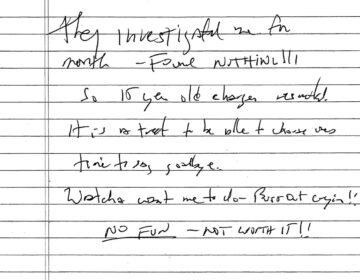 they investigated me for
month – Found NOTHING!!!
So 16 year old charges resulted.
It is a treat to be able to choose ones
time to say goodbye.
Watcha want me to do – Burst out crying!!
NO FUN – NOT WORTH IT!!